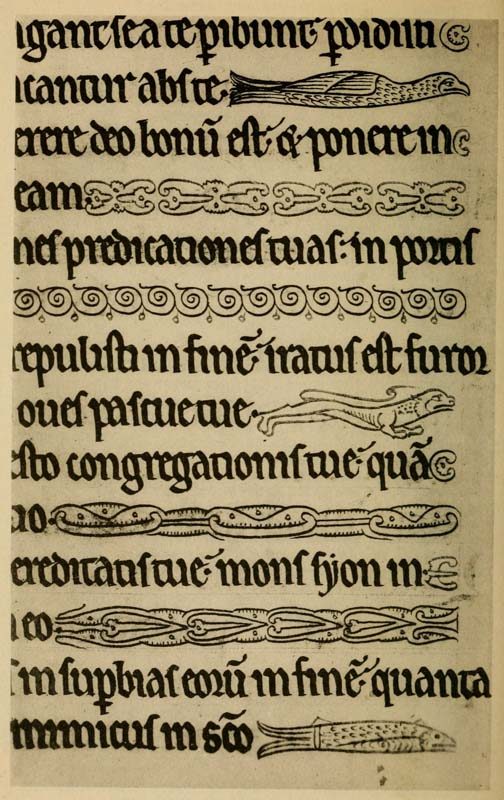 ngant se a te ꝑibunt: ꝑdidiſti
icantur abs te.
erere deo bonū est: & ponere in
eam.
nes predicationes tuas: in portis
repulisti in finē: iratus est furor
oues pascue tue.
esto congregationis tue: quā
io.
ereditatis tue: mons syon in
n eo.
s in suꝑbias eorū in finē: quanta
inimicus in sc̄o